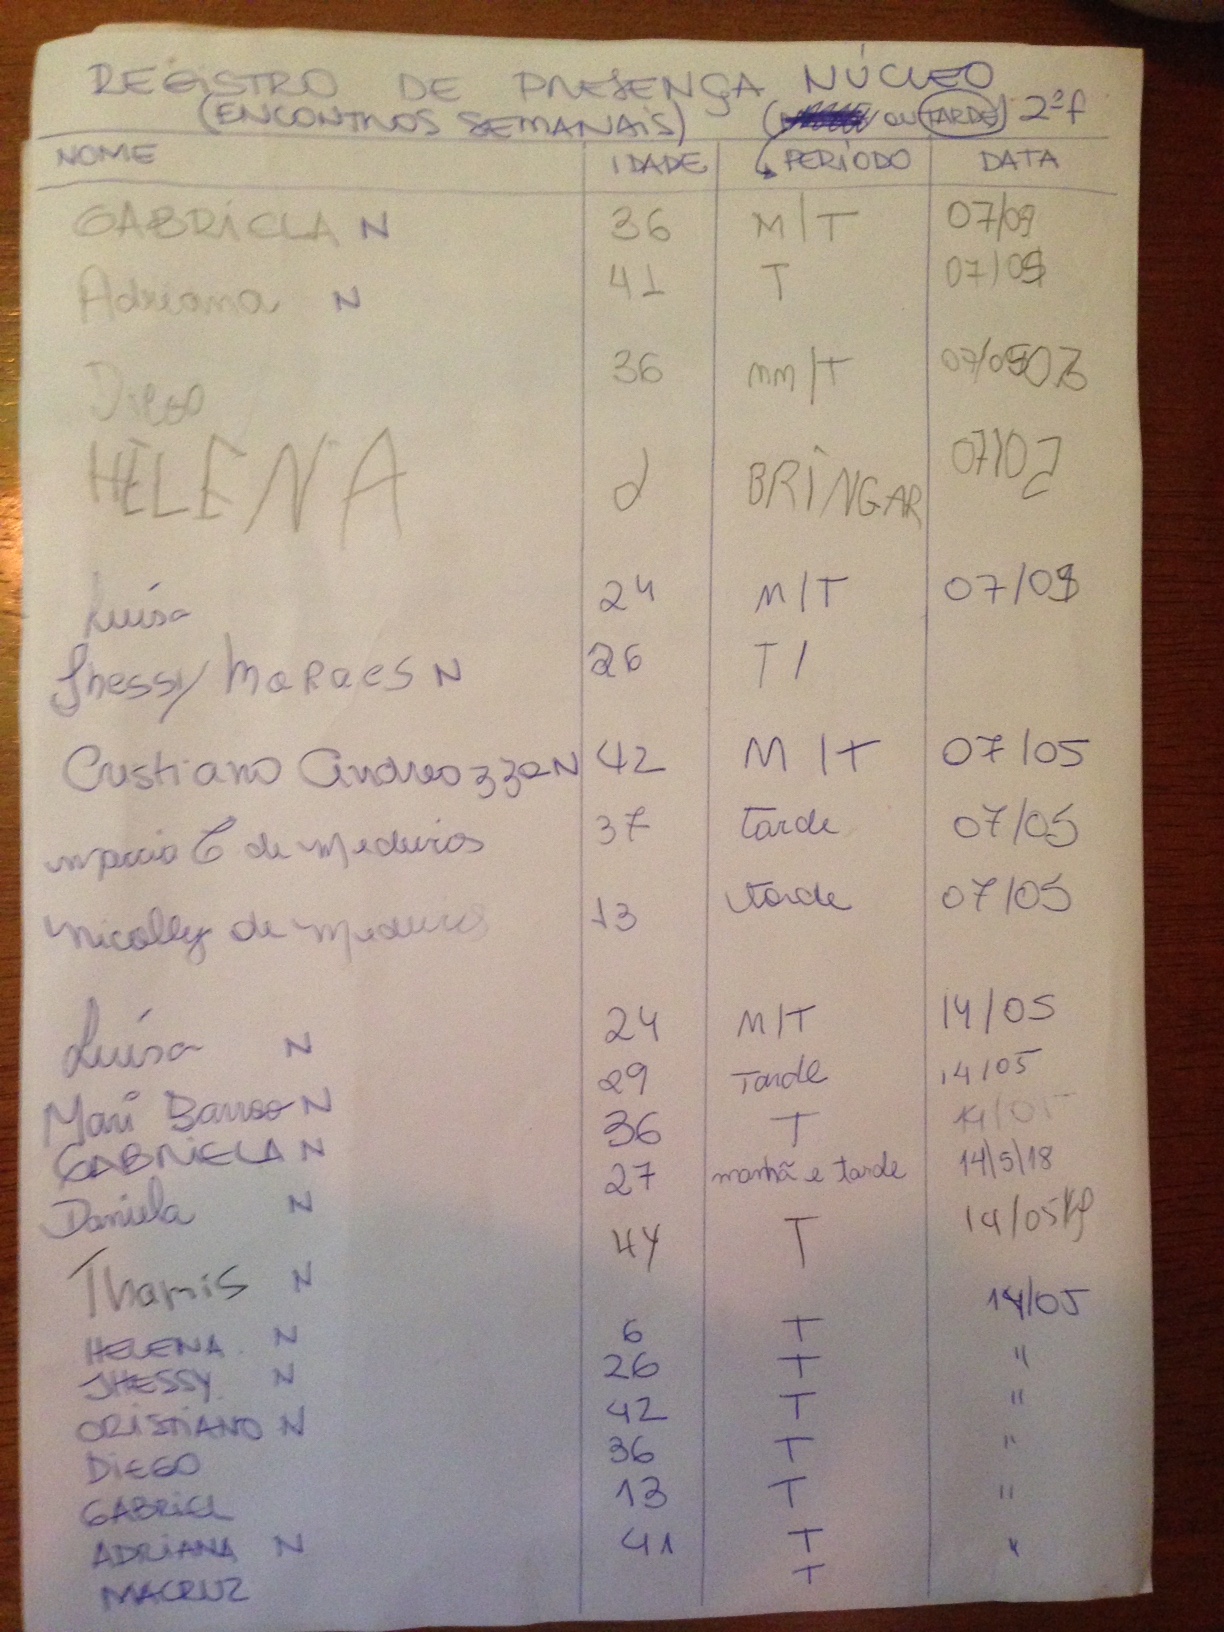 REGISTRO DE PRESENÇA NÚCLEO
(ENCONTROS SEMANAIS) ( OU TARDE) 2ªf
NOME IDADE PERÍODO DATA
GABRIELA N 36 M/T 07/05
Adriana N 41 T 07/05
Diego 36 mm/T 07/05
HELENA BRINGAR 07/0
Luísa 24 M/T 07/05
Jhessy Moraes N 26 T/
Cristiano Andreozza N 42 M/T 07/05
C de Medeiros 37 tarde 07/05
Nicolly de Medeiros 13 tarde 07/05
Luísa N 24 M/T 14/05
Mari Barros N 29 Tarde 14/05
GABRIELA N 36 T 14/05
Daniela N 27 manhã e tarde 14/5/18
Thamis N 44 T 14/05/18
HELENA N 6 T 14/05
JHESSY N 26 T "
CRISTIANO N 42 T "
DIEGO 36 T "
GABRIEL 13 T "
ADRIANA N 41 T "
MACRUZ T